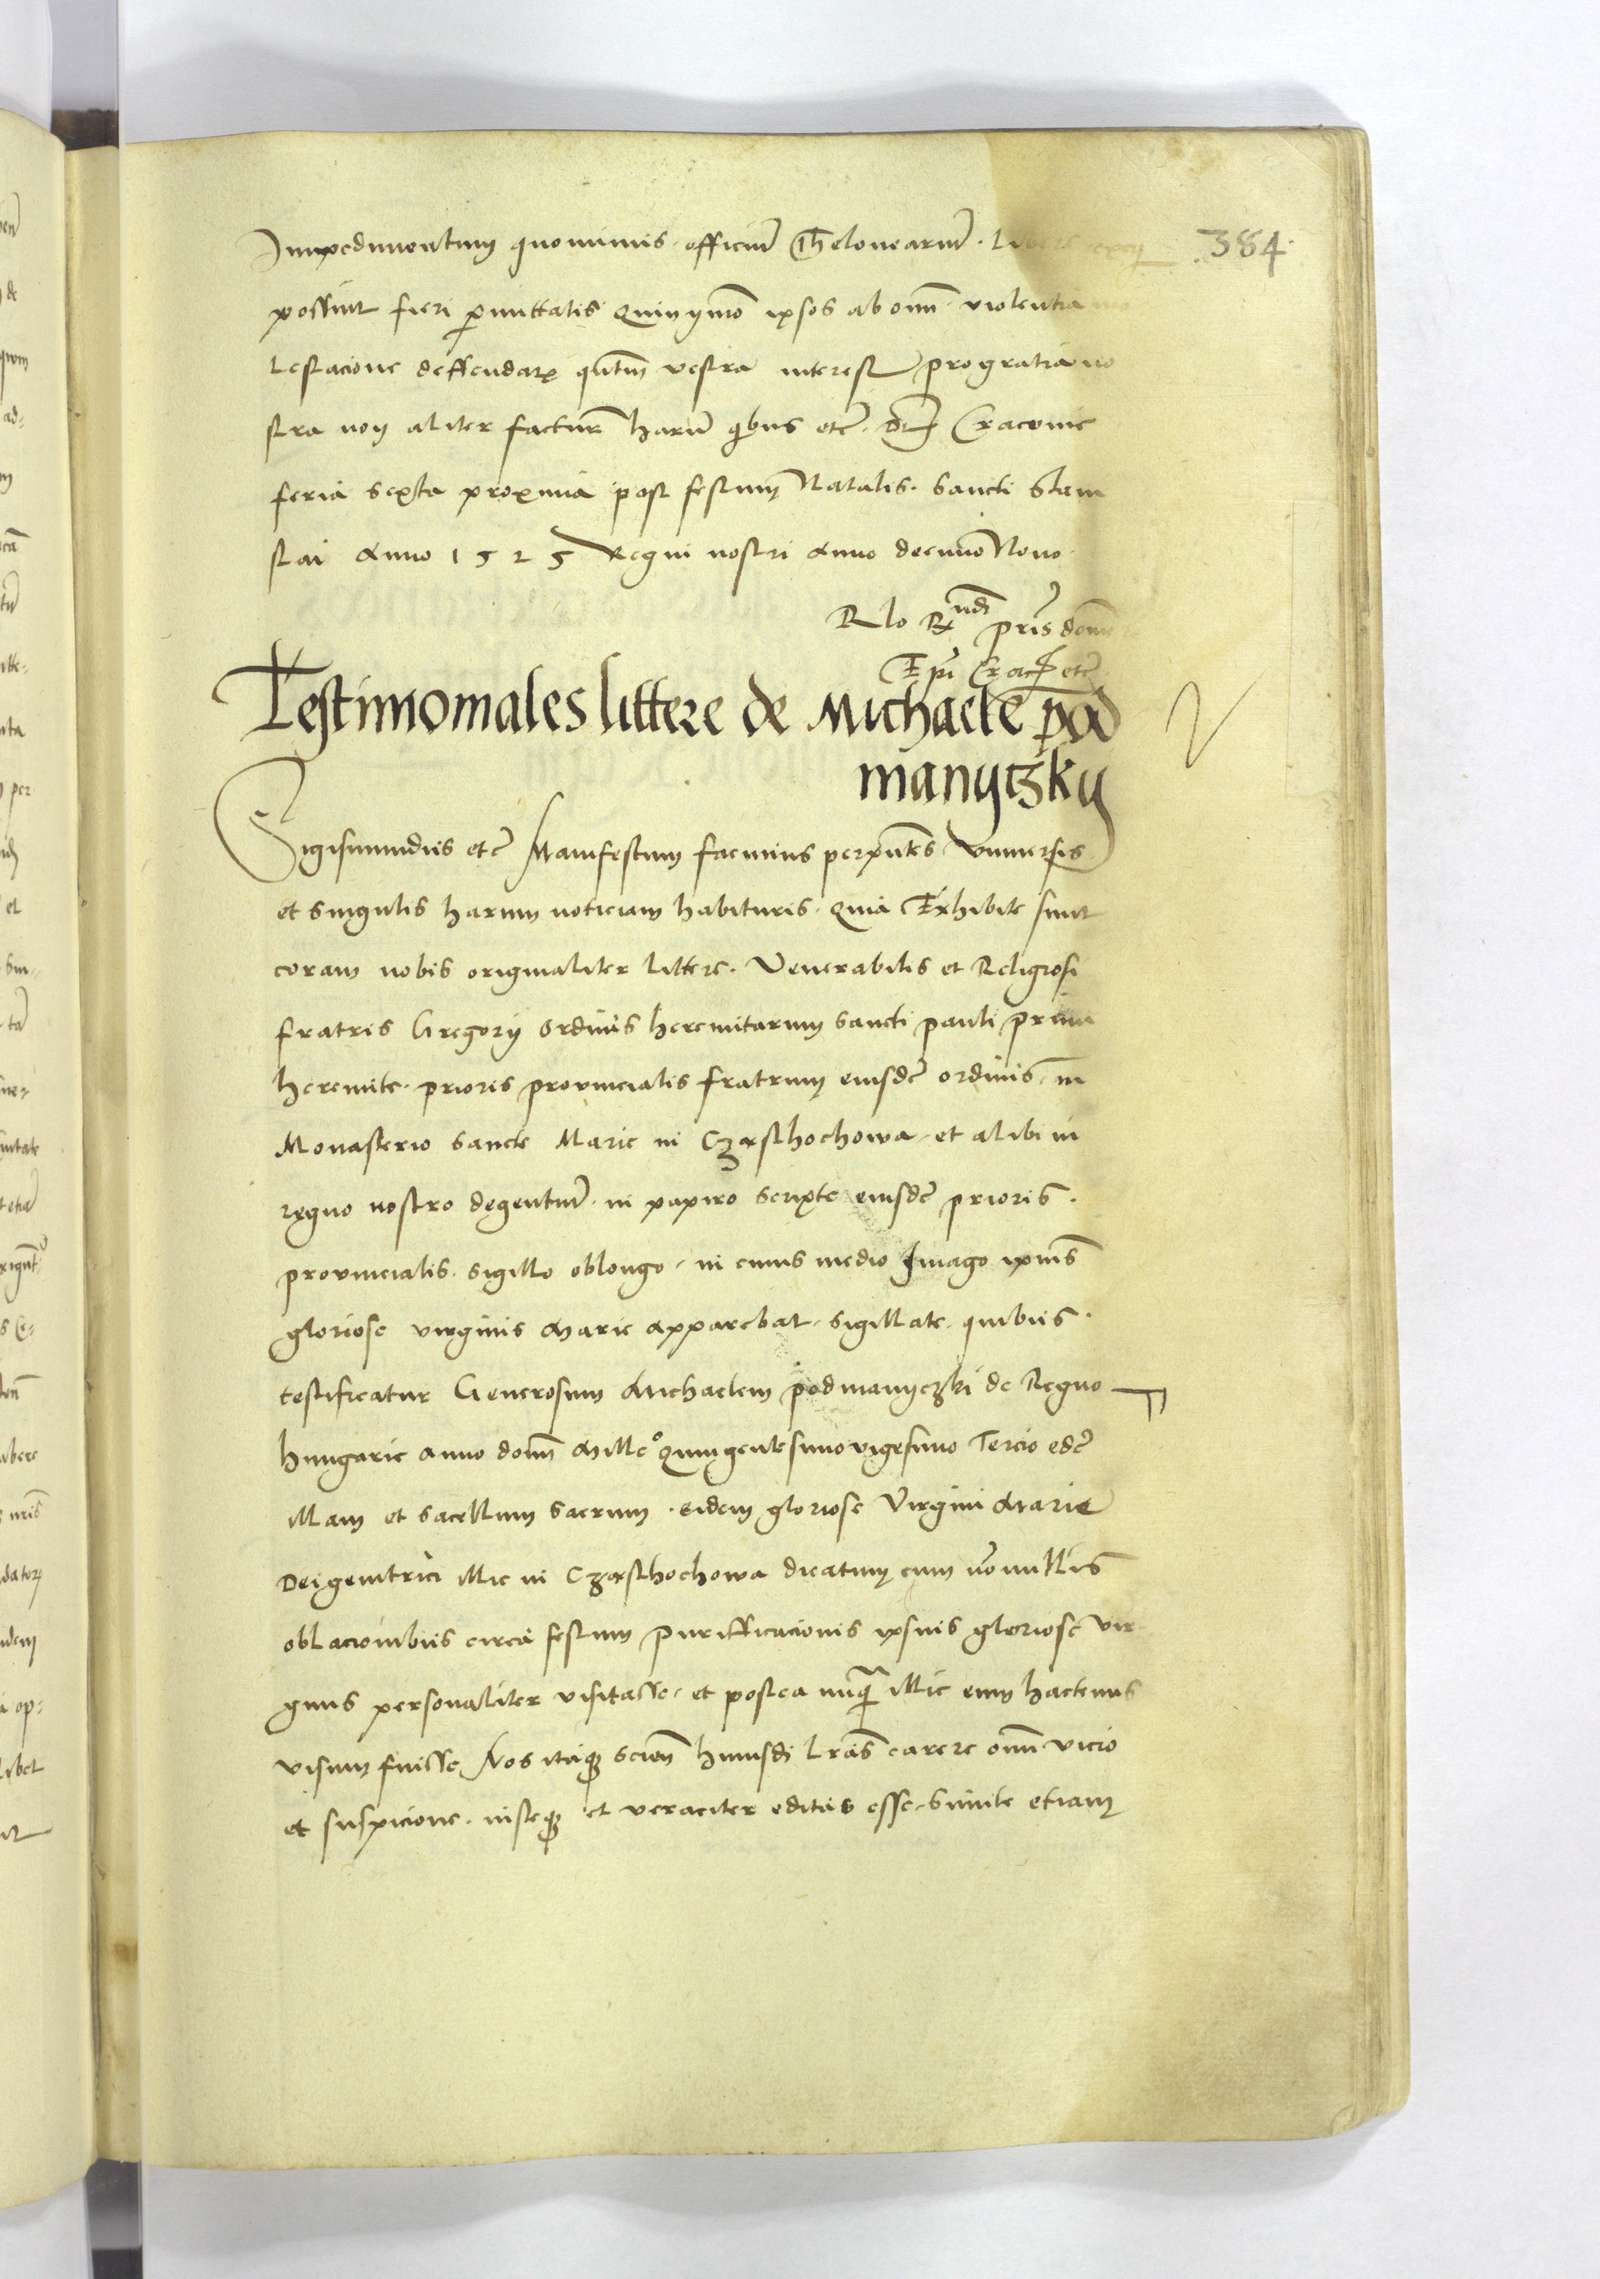 384
Impedimentum quominus officiu̅ Theloneariu̅ libere
possint fieri p̲mittatis Quin ymo̅ ipsos ab omn̅i violentia mo
lestacione deffendatis qn̅tum vestra interest pro gratia no
stra non aliter factur̅ haru̅ q̅bus etc̅ dat̅ Cracovie
feria sexta proxima post festum Natalis Sancti Stani
slai Anno 1525 Regni nostri Anno decimo Nono
Rlo Rn̅di pr̅is domi
Ep̅i Crac̅ etc̅
Testimoniales littere de Michaele pod
manyczky
Sigismundus etc̅ Manifestum facimus per pn̅tes Universis
et singulis harum noticiam habituris quia Exhibite sunt
coram nobis originaliter littere Venerabilis et Religiosi
fratris Gregorii Ordinis heremitarum Sancti pauli primi
heremite prioris provincialis fratrum eiusde̅ ordinis in
Monasterio Sancte Marie in Czasthochowa et alibi in
regno nostro degentiu̅ in papiro scripte eiusde̅ prioris
provincialis sigillo oblongo in cuius medio Imago ipius̅
gloriose virginis Marie apparebat sigillate quibus
testificatur Generosum Michaelem podmanyczki de Regno
hungarie Anno domi̅ Mille̊ Quingentesimo vigesimo Tercio ede̅
illam et sacellum sacrum eidem gloriose Virgini Marie
Dei genitrici illic in Czasthochowa dicatum cum no̅nullis
oblacionibus circa festum purifficacionis ipsius gloriose vir
ginis personaliter visitasse et postea nu̅q̅ illic eum hactenus
visum fuisse Nos itaq̲ scien̅ huiusd̅i lr̅as carere omni̅ vicio
et suspicione iusteq̲ et veraciter editas esse simile etiam